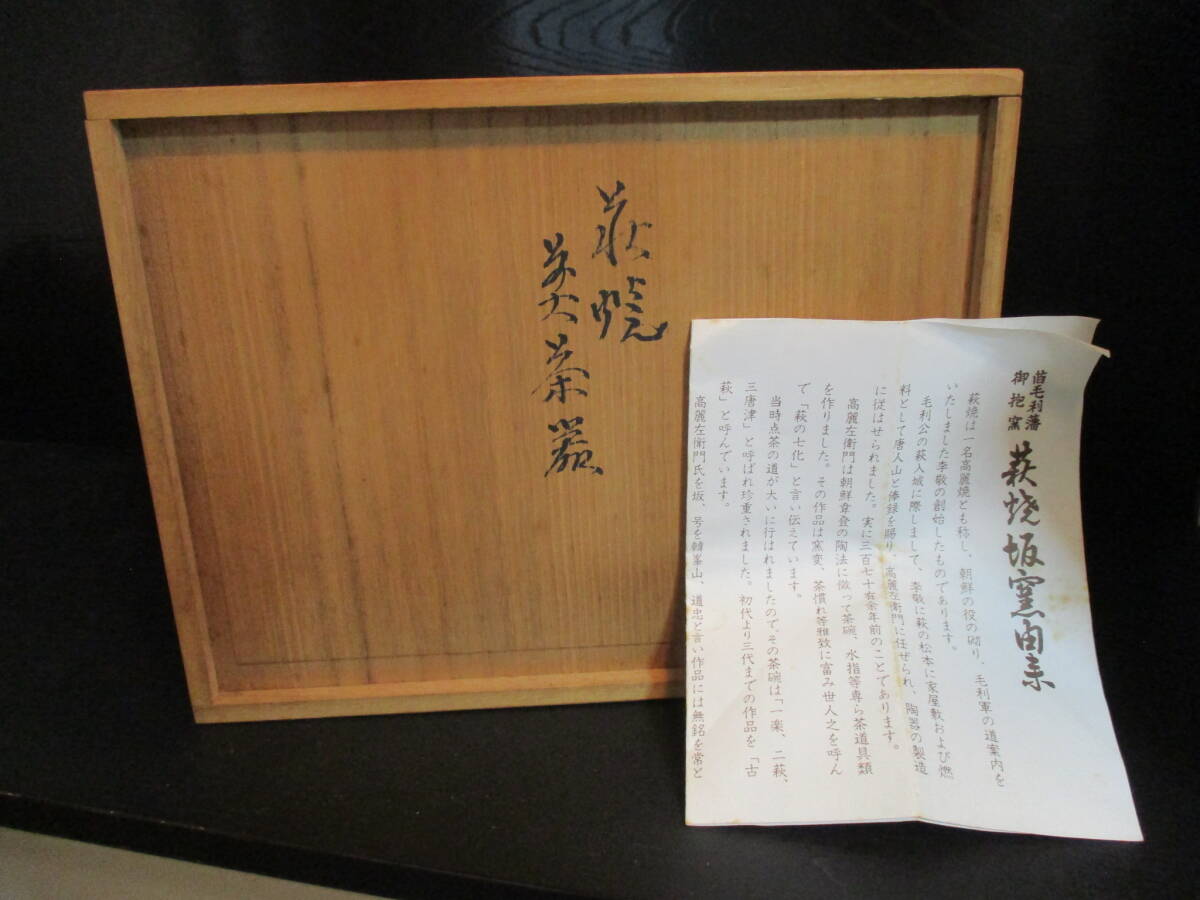 萩焼
煎茶器
旧毛利藩
御抱窯
萩焼坂窯由来
萩焼は一名高麗焼とも称し、朝鮮の役の砌り、毛利軍の道案内を
いたしました李敬の創始したものであります。
毛利公の萩入城に際しまして、李敬に萩の松本に家屋敷および燃
料として唐人山と俸録を賜り、高麗左衛門に任ぜられ、陶器の製造
に従はせられました。実に三百七十有余年前のことであります。
高麗左衛門は朝鮮韋登の陶法に倣って茶碗、水指等専ら茶道具類
を作りました。その作品は窯変、茶慣れ等雅致に富み世人之を呼ん
で「萩の七化」と言い伝えています。
当時点茶の道が大いに行はれましたので、その茶碗は「一楽、二萩、
三唐津」と呼ばれ珍重されました。初代より三代までの作品を「古
萩」と呼んでいます。
高麗左衛門氏を坂、号を韓峯山、道忠と言い作品には無銘を常と